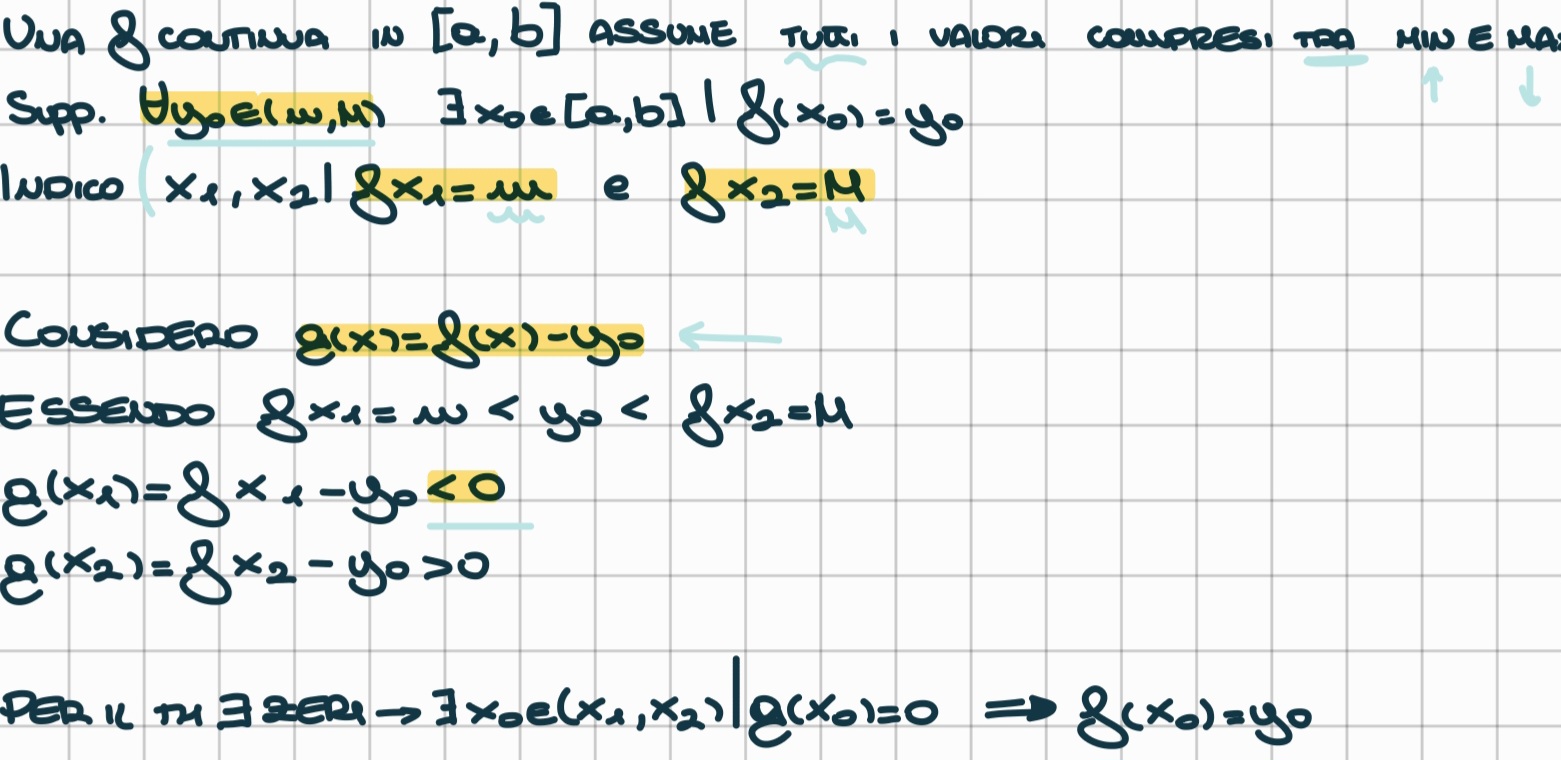 UNA f CONTINUA IN [a, b] ASSUME TUTTI I VALORI COMPRESI TRA MIN E MA
SUPP. ∀y₀∈(m,M) ∃x₀∈[a,b] | f(x₀)=y₀
INDICO x₁,x₂| fx₁=m e fx₂=M
m M
CONSIDERO g(x)=f(x)-y₀ ←
ESSENDO fx₁=m < y₀ < fx₂=M
g(x₁)=fx₁-y₀<0
g(x₂)=fx₂-y₀>0
PER IL TH ∃ ZERI→∃x₀∈(x₁,x₂)|g(x₀)=0 ⇒ f(x₀)=y₀